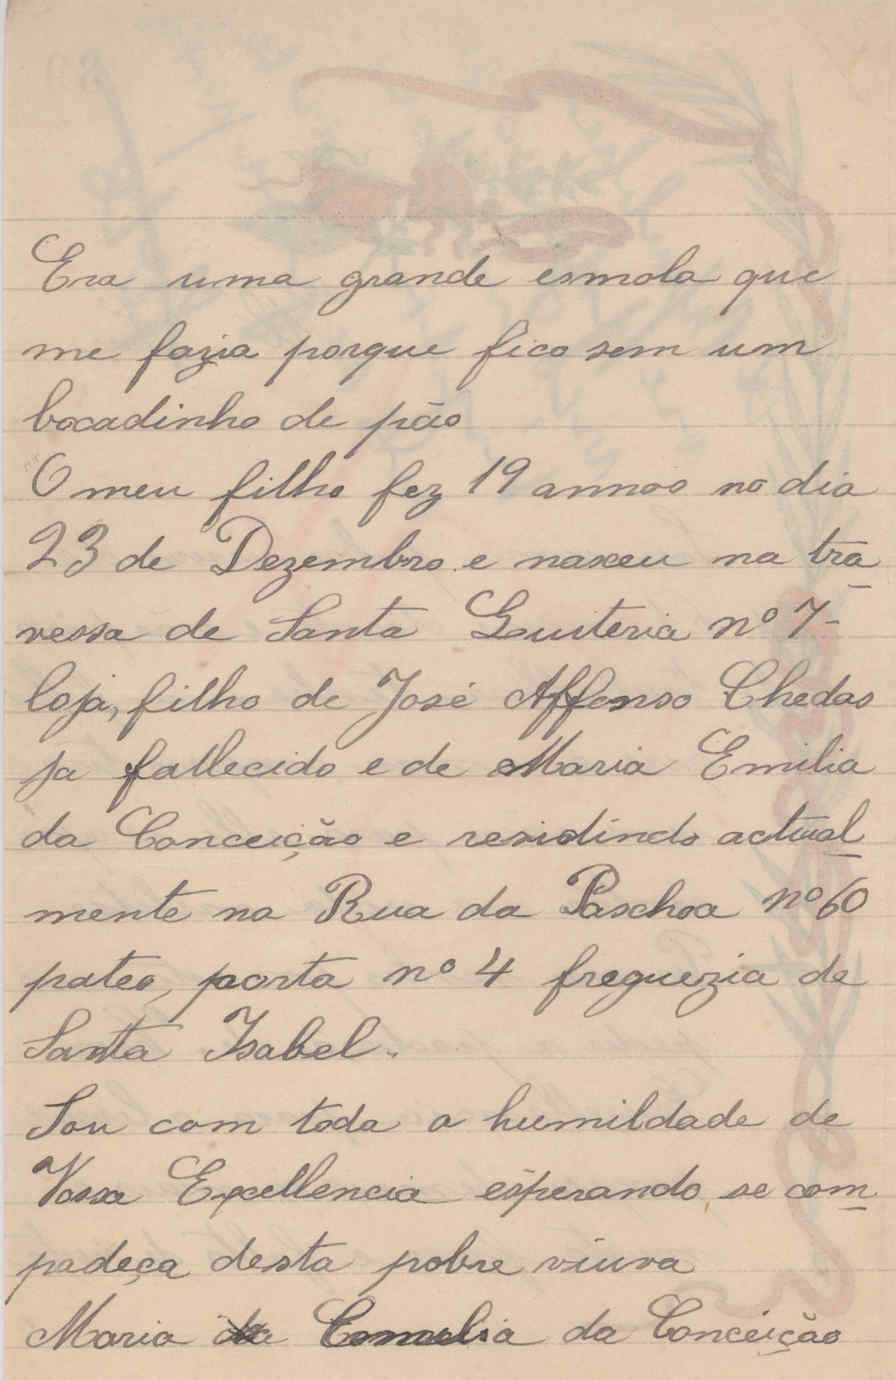 Era uma grande esmola que
me fazia porque fico sem um
bocadinho de pão
O meu filho fez 19 annos no dia
23 de Dezembro e nasceu na tra
vessa de Santa Quiteria nº 7-
loja, filho de José Affonso Chedas
ja fallecido e de Maria Emilia
da Conceição e residindo actual
mente na Rua da Paschoa nº 60
pateo, porta nº 4 freguezia de
Santa Isabel.
Sou com toda a humildade de
Vossa Excellencia esperando se com
padeça desta pobre viuva
Maria da Conceição